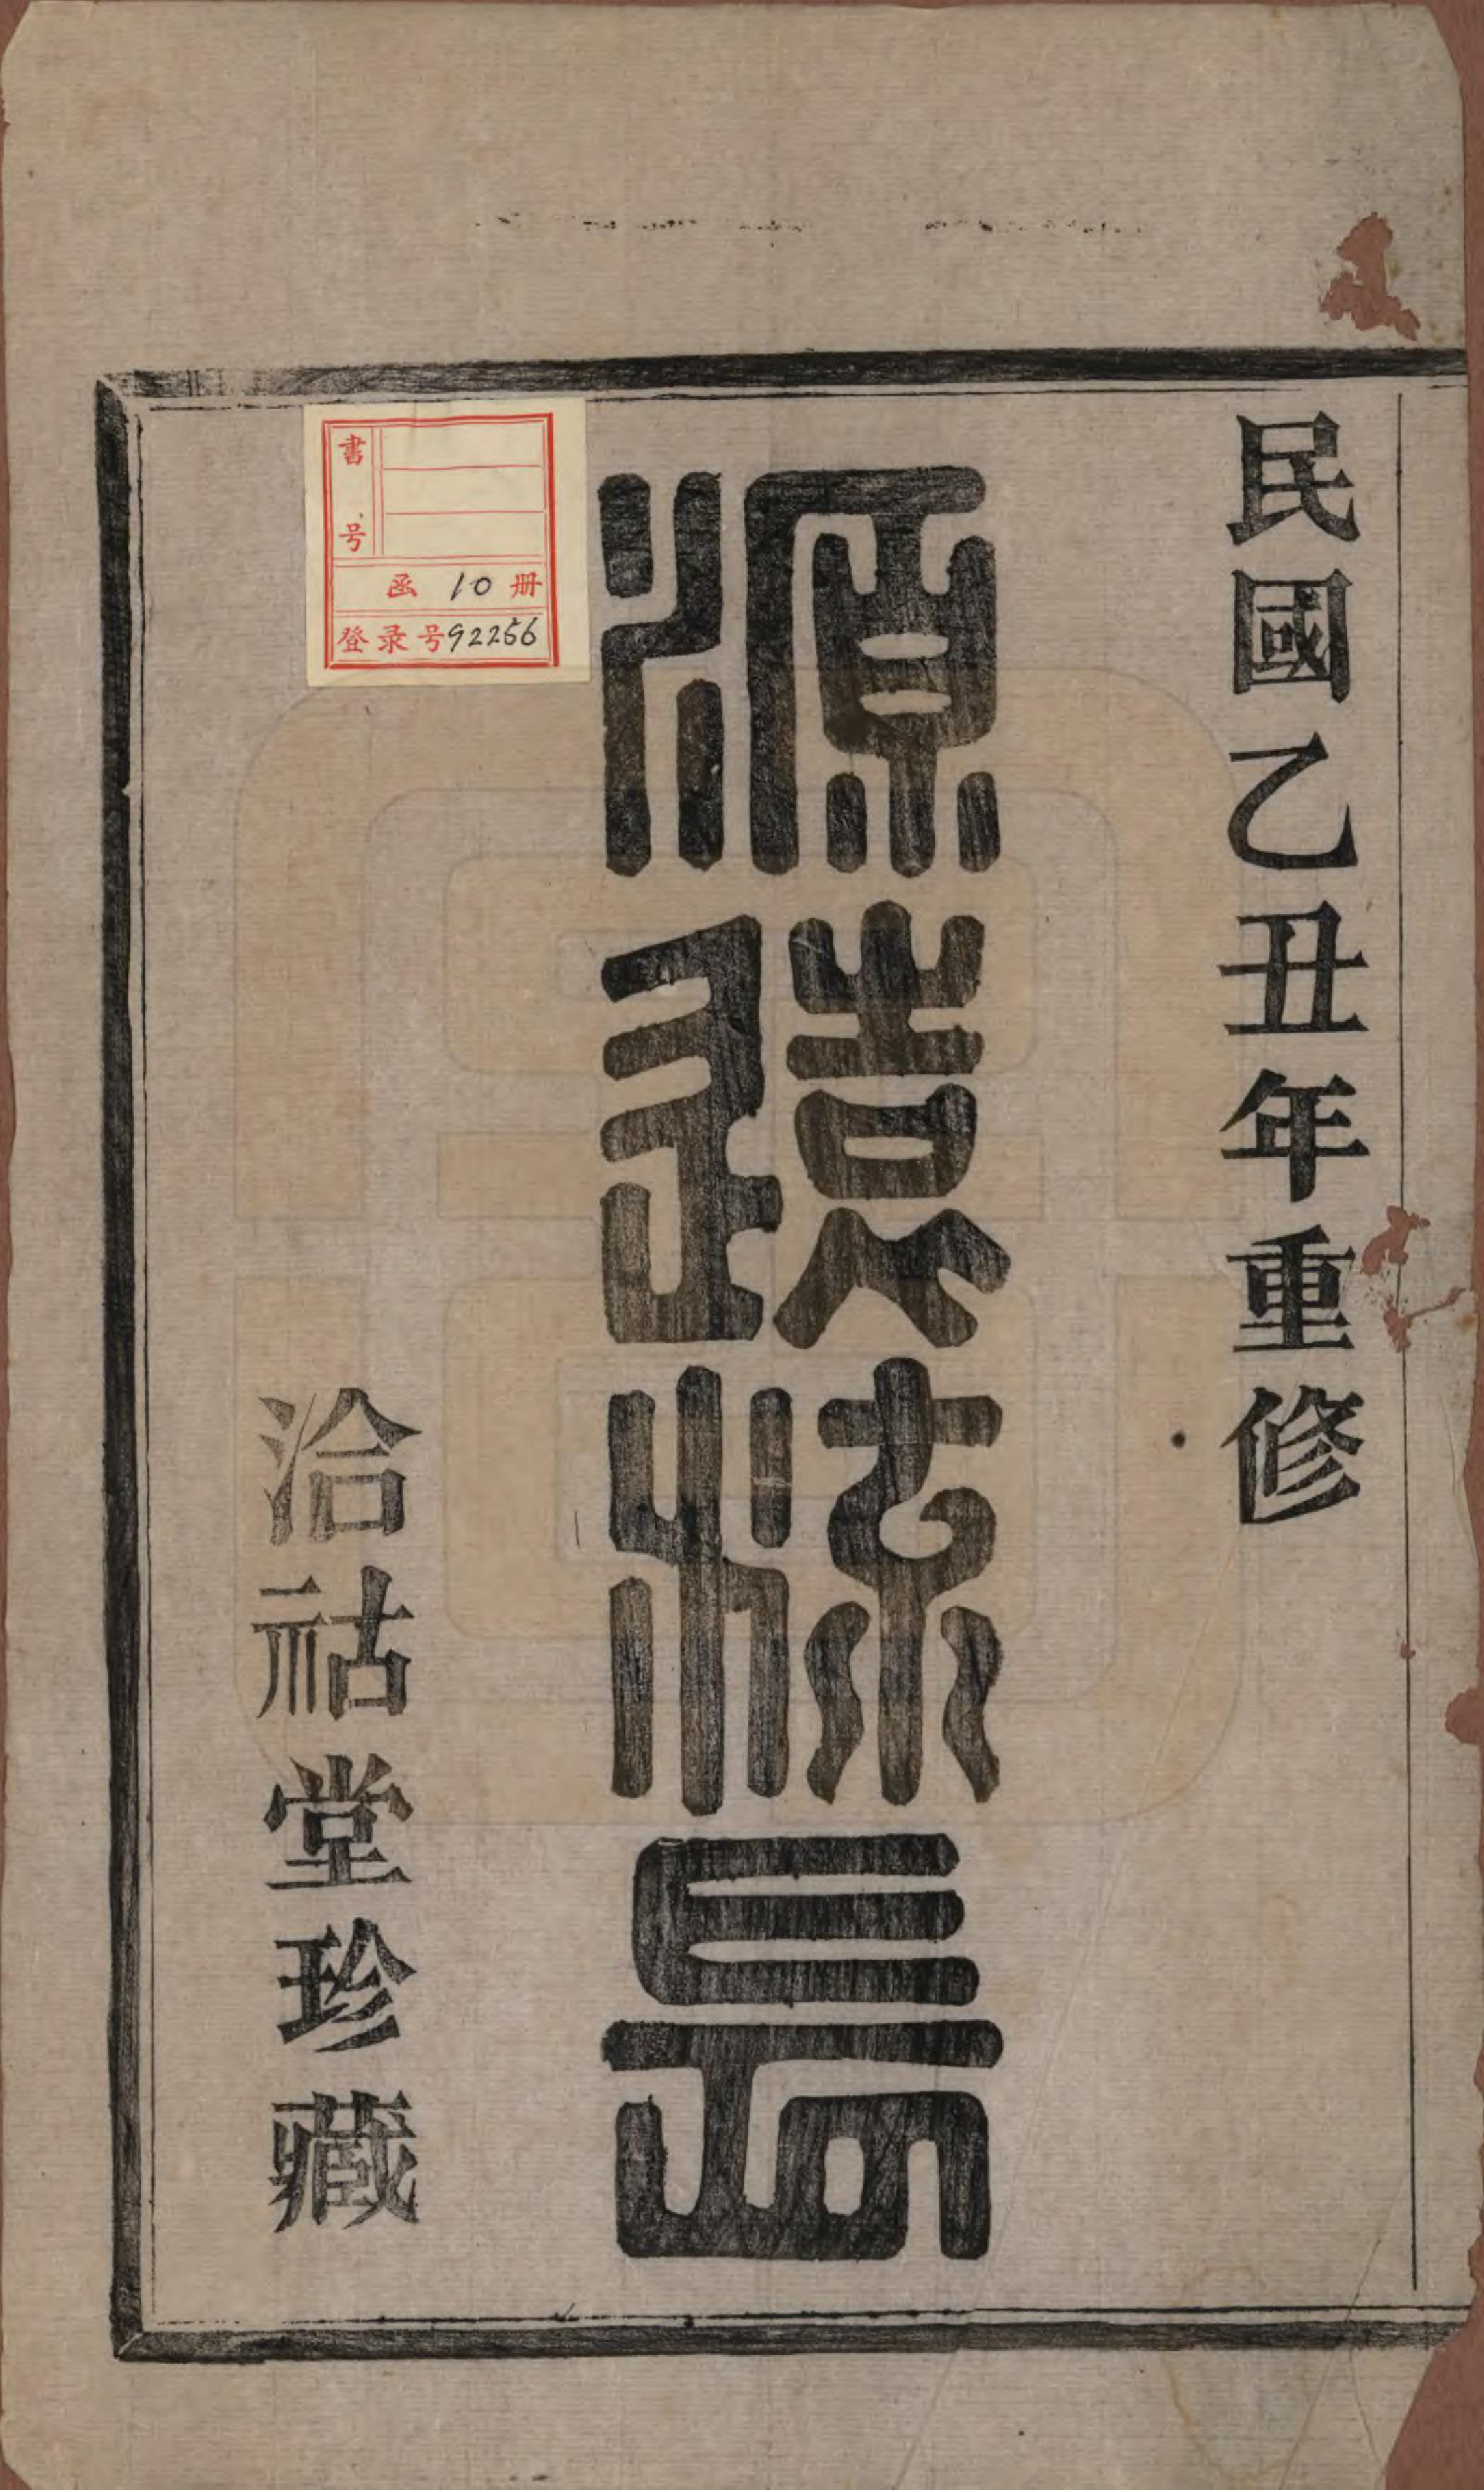 民國乙丑年重修
源遠流長
洽祜堂珍藏
書号
函 10 册
登录号92256